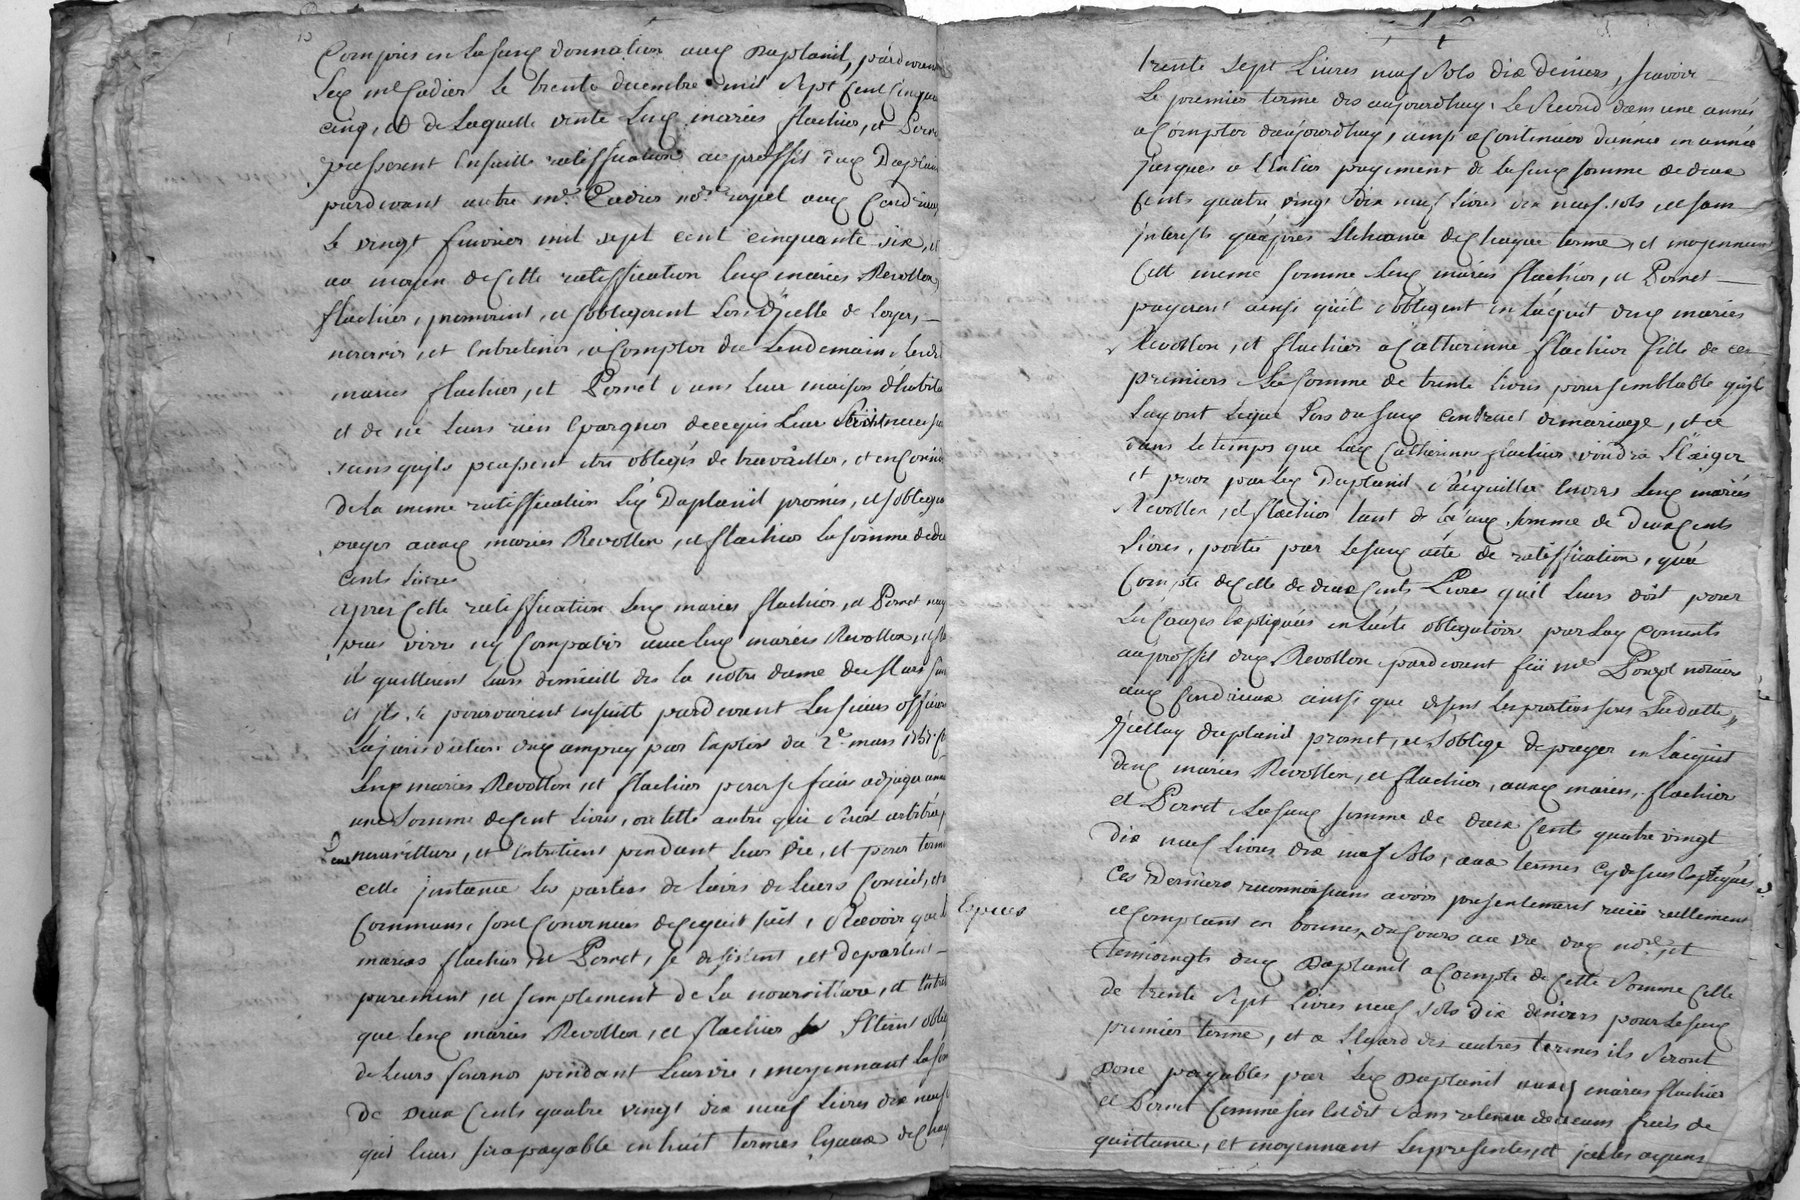 Compris en la susd donnation aud Duplanil, pardevant
led me Cadier le trente decembre mil sept cent cinquante
cinq, et de laquelle vente lesd mariés flachier, et Pernet
passerent ensuitte ratiffication au proffit dud Duplanil
pardevant autre me. Cadier nore. royal aud Condrieux
le vingt fevrier mil sept cent cinquante six, et
au moyen de cette ratiffication lesd mariés Revollon
flachier, promirent, et sobligerent lors d'jcelle de loger,
nourrir, et entretenir, a compter du lendemain, lesd
mariés flachier, et Pernet dans leur maison d'habita
et de ne leurs rien Epargner de ce qui leur seroit necess
sans quils peussent etre obligés de travailler, et en consid
de la meme ratiffication led Duplanil promis, et sobligea
payer auxd mariés Revollon, et flachier la somme de deux
cents livres
apres cette ratiffication lesd mariés flachier, et Pernet
pas vivre ny compatir avec lesd mariés Revollon, et fla
il quitterent leurs domicille des la notre dame de mars
et ils se pourvurent ensuitte pardevant les sieurs officiers
la jurisdiction dud ampuy par exploit du 2e mars 1757
lesd mariés Revollon, et flachier pour se faire adjuger
une somme de cent livres, ou telle autre qui seroit arbitrée,
leur nourriture, et entretient pendant leur vie, et pour term
cette jnstance les parties de lavis de leurs conseil, et
communs, sont convenues de ce qui suit, scavoir que les
mariés flachier, et Pernet, se desistent, et departent
purement, et simplement de la nourriture, et entret
que lesd mariés Revollon, et flachier setoient oblig
de leurs fournir pendant leur vie, moyennant la som
de deux cents quatre vingt dix neuf livres dix neuf
qui leurs sera payable en huit termes Egaux de chaq
trente sept livres neuf sols dix deniers, scavoir
le premier terme des aujourdhuy, le second dans une année
a compter daujourdhuy, ainsi a continuer d'année en année
jusques a l'Entier payement de la susd somme de deux
cents quatre vingt dix neuf livres dix neuf sols, et sans
jnterests qu'apres l'Echeance de chaque terme, et moyennant
cette meme somme lesd mariés flachier, et Pernet
payeront ainsi quil s'obligent en l'acquit desd mariés
Revollon, et flachier a Catherinne flachier fille de ces
premiers la somme de trente livres pour semblable quils
luy ont legué lors du susd contract de mariage, et ce
dans le temps que lad Catherinne flachier voudra l'Exiger
et pour par led Duplanil s'acquitter envers lesd mariés
Revollon, et flachier tant de lad somme de deux cents
livres, portée par le susd acte de ratiffication, qu'a
compte de celle de deux cents livres quil leurs doit pour
les causes Expliquées en l'acte obligatoire par luy consenti
au proffit dud Revollon pardevant feü me Pouget notaire
aud Condrieux ainsi que disent les parties sous sa datte
jcelluy duplanil promet, et soblige de payer en l'acquit
desd mariés Revollon, et flachier, auxd mariés flachier
et Pernet, la susd somme de deux cents quatre vingt
dix neuf livres dix neuf sols, aux termes cy dessus Expliqués,
ces derniers reconnoissans avoir presentement receü reellement
Especes
et comptant en bonnes, du cours au vû dud nore, et
temoingts dud Duplanil a compte de cette somme celle
de trente sept livres neuf sols dix deniers pour le susd
premier terme, et a l'Egard des autres termes ils seront
donc payables par led Duplanil auxd mariés flachier
et Pernet comme sus est dit sans retenue d'aucuns frais de
quittance, et moyennant les presentes, et jcelles ayant